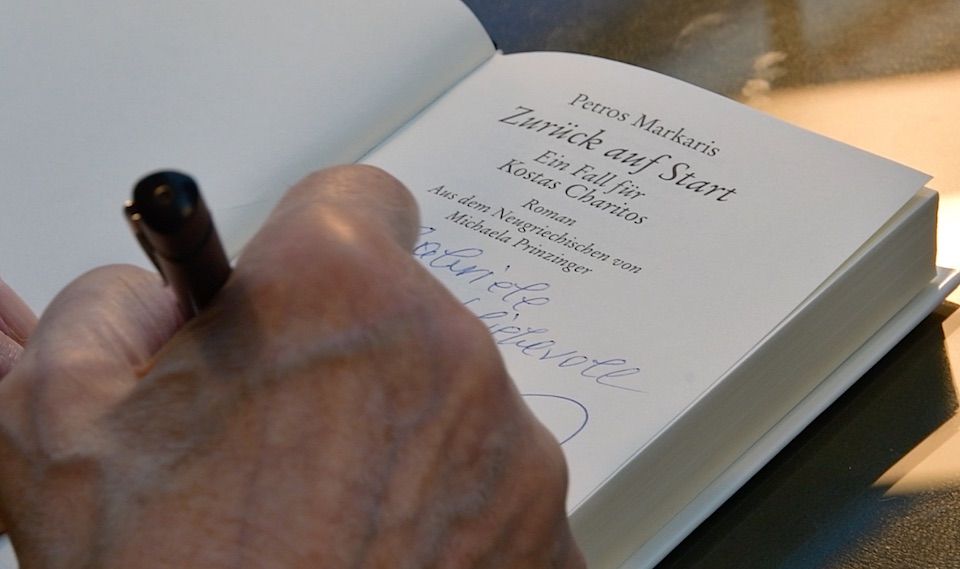 Petros Markaris
Zurück auf Start
Ein Fall für
Kostas Charitos
Roman
Aus dem Neugriechischen von
Michaela Prinzinger
Gabriele
liebevoll